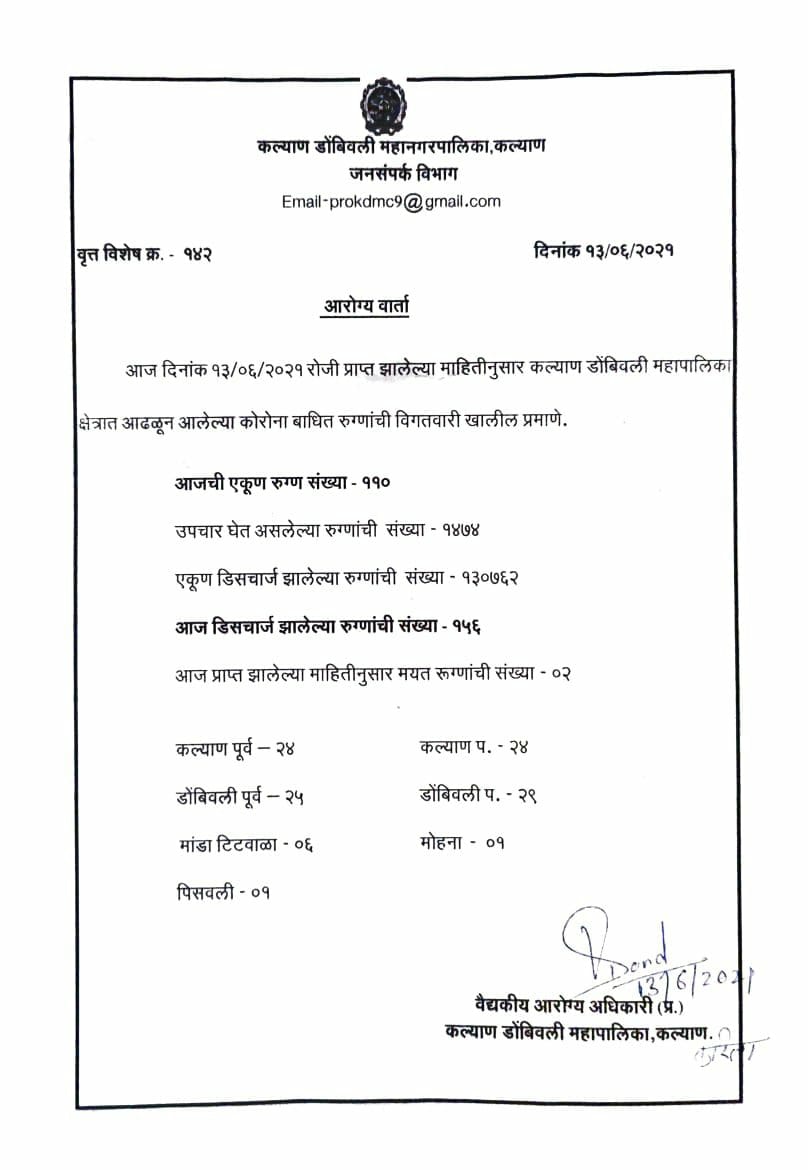 कल्याण डोंबिवली महानगरपालिका,कल्याण
जनसंपर्क विभाग
Email-prokdmc9@gmail.com
वृत्त विशेष क्र. - १४२ दिनांक १३/०६/२०२१
आरोग्य वार्ता
आज दिनांक १३/०६/२०२१ रोजी प्राप्त झालेल्या माहितीनुसार कल्याण डोंबिवली महापालिका
क्षेत्रात आढळून आलेल्या कोरोना बाधित रुग्णांची विगतवारी खालील प्रमाणे.
आजची एकूण रुग्ण संख्या - ११०
उपचार घेत असलेल्या रुग्णांची संख्या - १४७४
एकूण डिसचार्ज झालेल्या रुग्णांची संख्या - १३०७६२
आज डिसचार्ज झालेल्या रुग्णांची संख्या - १५६
आज प्राप्त झालेल्या माहितीनुसार मयत रूग्णांची संख्या - ०२
कल्याण पूर्व – २४ कल्याण प. - २४
डोंबिवली पूर्व – २५ डोंबिवली प. - २९
मांडा टिटवाळा - ०६ मोहना - ०१
पिसवली - ०१
13/6/2021
वैद्यकीय आरोग्य अधिकारी (प्र.)
कल्याण डोंबिवली महापालिका,कल्याण.
करिता